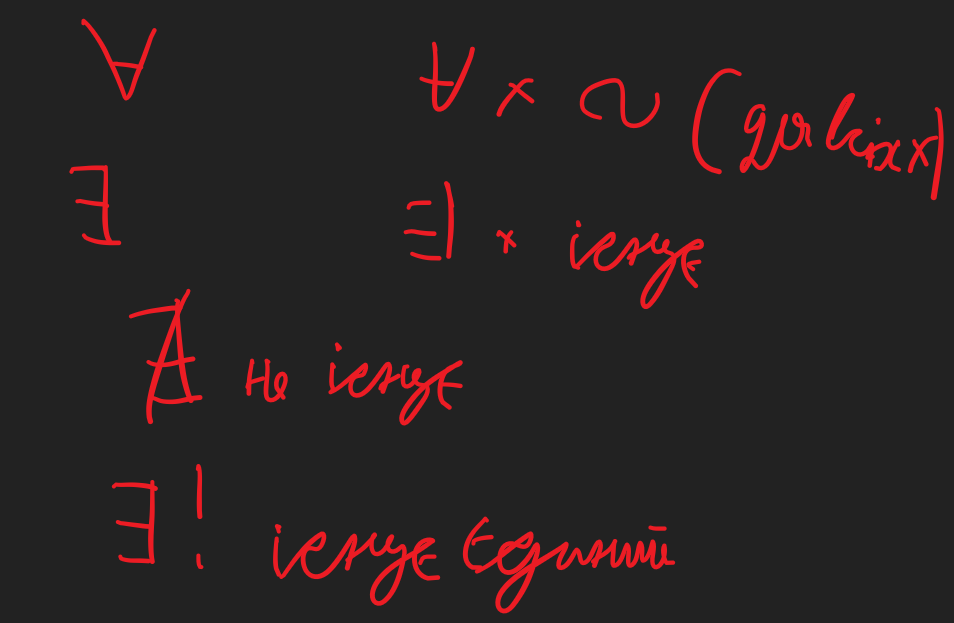 ∀ ∀ x ~ (для всіх x)
∃ ∃ x існує
∄ не існує
∃! існує єдиний